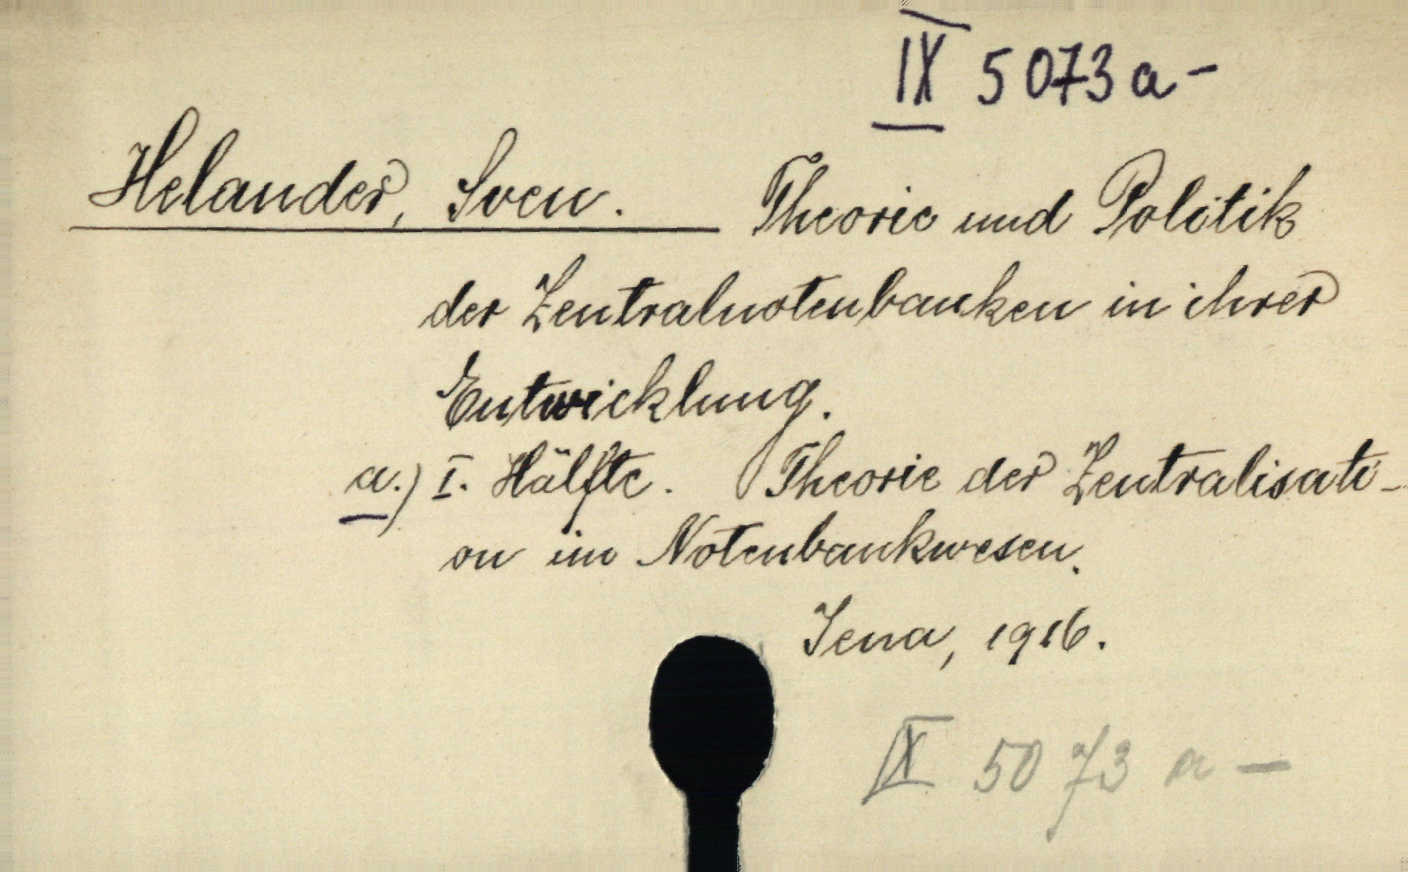 IX 5073 a -
Helander, Sven. Theorie und Politik
der Zentralnotenbanken in ihrer
Entwicklung.
a.) I. Hälfte. Theorie der Zentralisati-
on im Notenbankwesen.
Jena, 1916.
IX 5073 a -